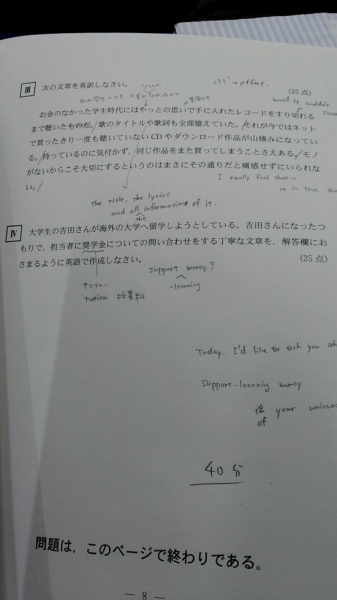 Ⅲ 次の文章を英訳しなさい。
(25点)
お金のなかった学生時代にはやっとの思いで手に入れたレコードをすり切れる
まで聴いたものだ。歌のタイトルや歌詞も全部憶えていた。それが今ではネット
で買ったきり一度も聴いていないCDやダウンロード作品が山積みになってい
る。持っているのに気付かず、同じ作品をまた買ってしまうことさえある。モノ
がないからこそ大切にするというのはまさにその通りだと痛感せずにいられな
い。
I really feel that
the title, the lyrics
and all information of it.
the
Ⅳ 大学生の吉田さんが海外の大学へ留学しようとしている。吉田さんになったつ
もりで、担当者に奨学金についての問い合わせをする丁寧な文章を、解答欄にお
さまるように英語で作成しなさい。
(25点)
support money?
-learning
tuition 授業料
Today, I'd like to ask you
support-learning money
of your
40分
問題は、このページで終わりである。
— 8 —